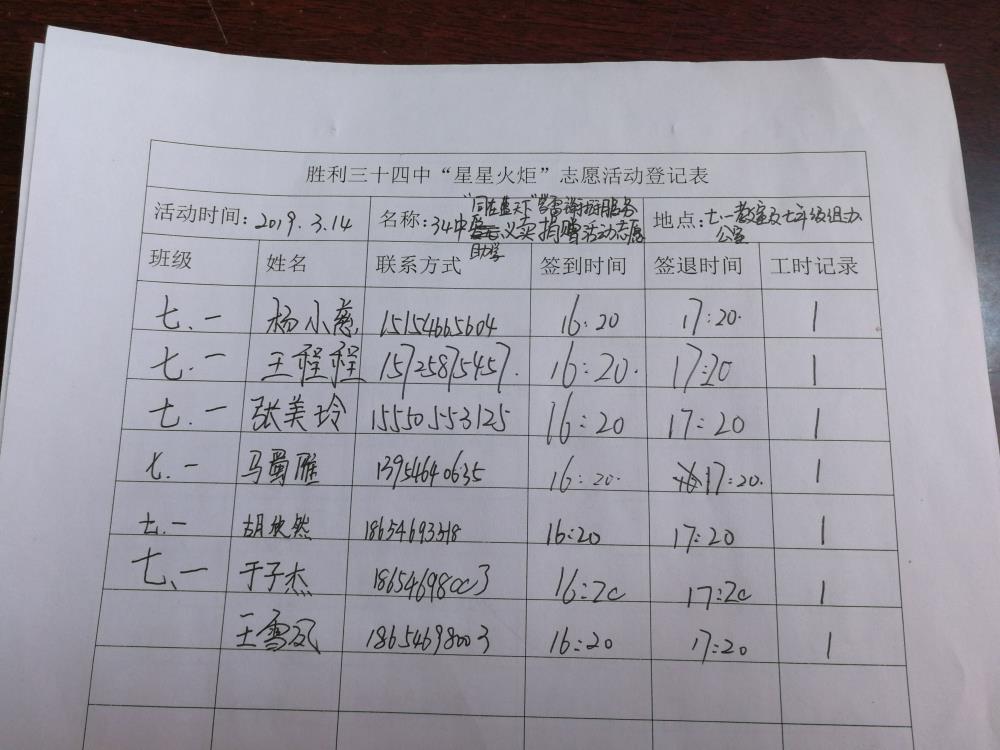 胜利三十四中“星星火炬”志愿活动登记表
活动时间: 2019.3.14 名称: 34中 "同在蓝天下" 服务 义卖捐赠活动志愿 助学 地点: 七一教室及七年级组办公室
班级 姓名 联系方式 签到时间 签退时间 工时记录
七.一 杨小慈 15154665604 16:20 17:20. 1
七.一 王程程 15725875457. 16:20. 17:20 1
七.一 张美玲 15550553125 16:20 17:20 1
七.一 马蜀雁 13954640635 16:20. 17:20. 1
七.一 胡 然 18654693318 16:20 17:20 1
七、一 于子杰 18654698003 16:20 17:20 1
王雪凤 18654698003 16:20 17:20 1